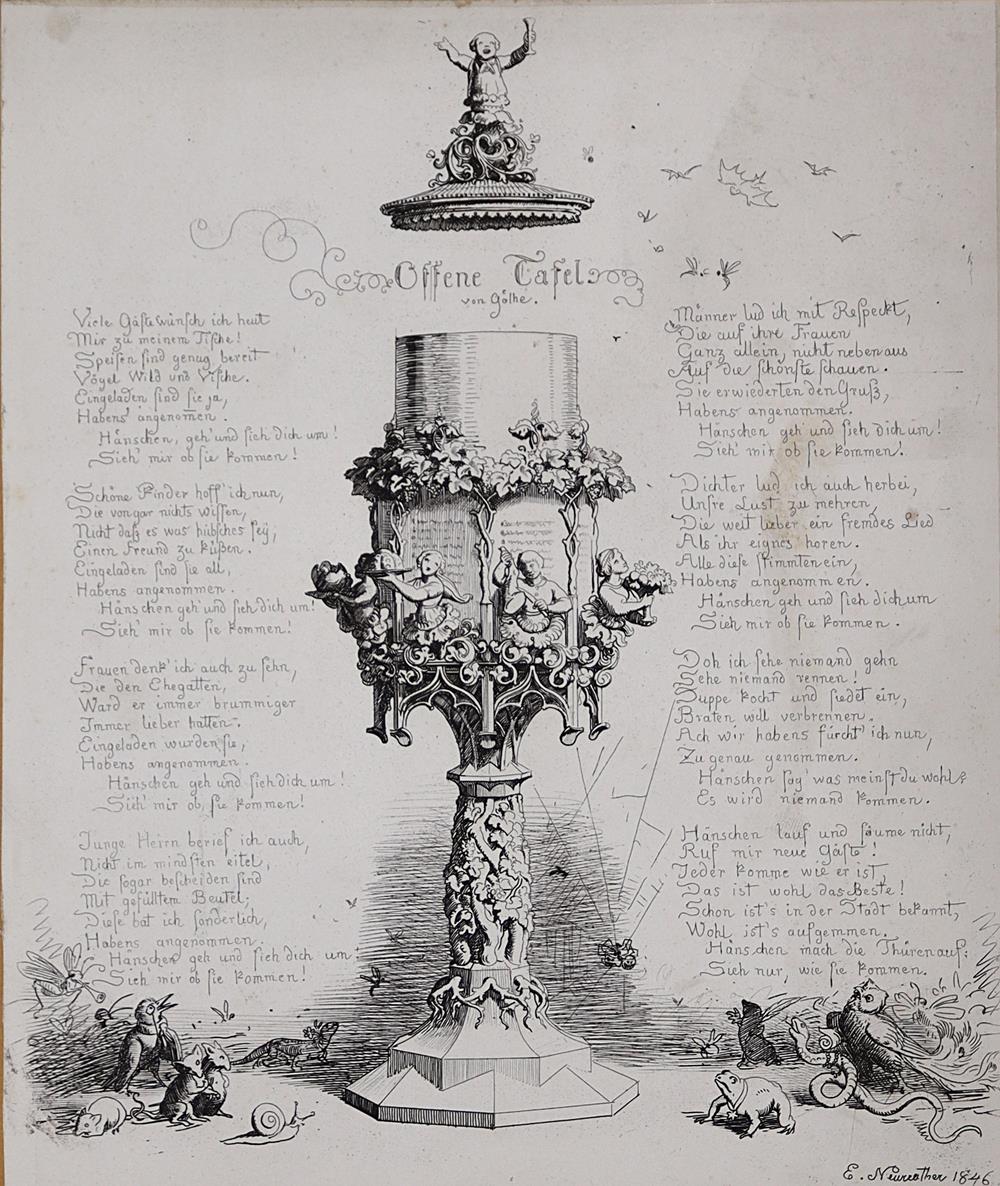 Offene Tafel
von Göthe.
Viele Gäste wünsch ich heut
Mir zu meinem Tische!
Speisen sind genug bereit
Vögel Wild und Fische.
Eingeladen sind sie ja,
Habens angenom̅en.
Hänschen, geh' und sieh dich um!
Sieh' mir ob sie kommen!
Schöne Kinder hoff' ich nun,
Die von gar nichts wissen,
Nicht daß es was hübsches sey,
Einen Freund zu küßen.
Eingeladen sind sie all,
Habens angenommen.
Hänschen geh' und sieh dich um!
Sieh' mir ob sie kommen!
Frauen denk' ich auch zu sehn,
Die den Ehegatten,
Ward er immer brummiger
Immer lieber hatten.
Eingeladen wurden sie,
Habens angenommen.
Hänschen geh und sieh dich um!
Sieh' mir ob sie kommen!
Junge Herrn berief ich auch,
Nicht im mindsten eitel,
Die sogar bescheiden sind
Mit gefülltem Beutel;
Diese bat ich sonderlich,
Habens angenommen.
Hänschen geh und sieh dich um
Sieh' mir ob sie kommen!
Männer lud ich mit Respeckt,
Die auf ihre Frauen
Ganz allein, nicht neben aus
Auf die schönste schauen.
Sie erwiederten den Gruß,
Habens angenommen.
Hänschen geh und sieh dich um!
Sieh' mir ob sie kommen!
Dichter lud ich auch herbei,
Unsre Lust zu mehren,
Die weit lieber ein fremdes Lied
Als ihr eignes hören.
Alle diese stimmten ein,
Habens angenommen.
Hänschen geh und sieh dich um
Sieh mir ob sie kommen.
Doh ich sehe niemand gehn
Sehe niemand rennen!
Suppe kocht und siedet ein,
Braten will verbrennen.
Ach wir habens fürcht' ich nun,
Zu genau genommen.
Hänschen sag' was meinst du wohl?
Es wird niemand kommen.
Hänschen lauf und säume nicht,
Ruf mir neue Gäste!
Jeder komme wie er ist,
Das ist wohl das Beste!
Schon ist's in der Stadt bekannt,
Wohl ist's aufgemmen.
Hänschen mach die Thüren auf:
Sieh nur, wie sie kommen.
E. Neureother 1846